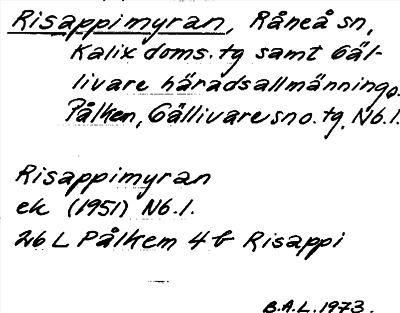 Risappimyran, Råneå sn,
Kalix doms. tg samt Gäl-
livare häradsallmänning o.
Pålkem, Gällivare sn o. tg. Nb.l.
Risappimyran
ek (1951) Nb.l.
26 L Pålkem 4 b Risappi
B.A.L. 1973.